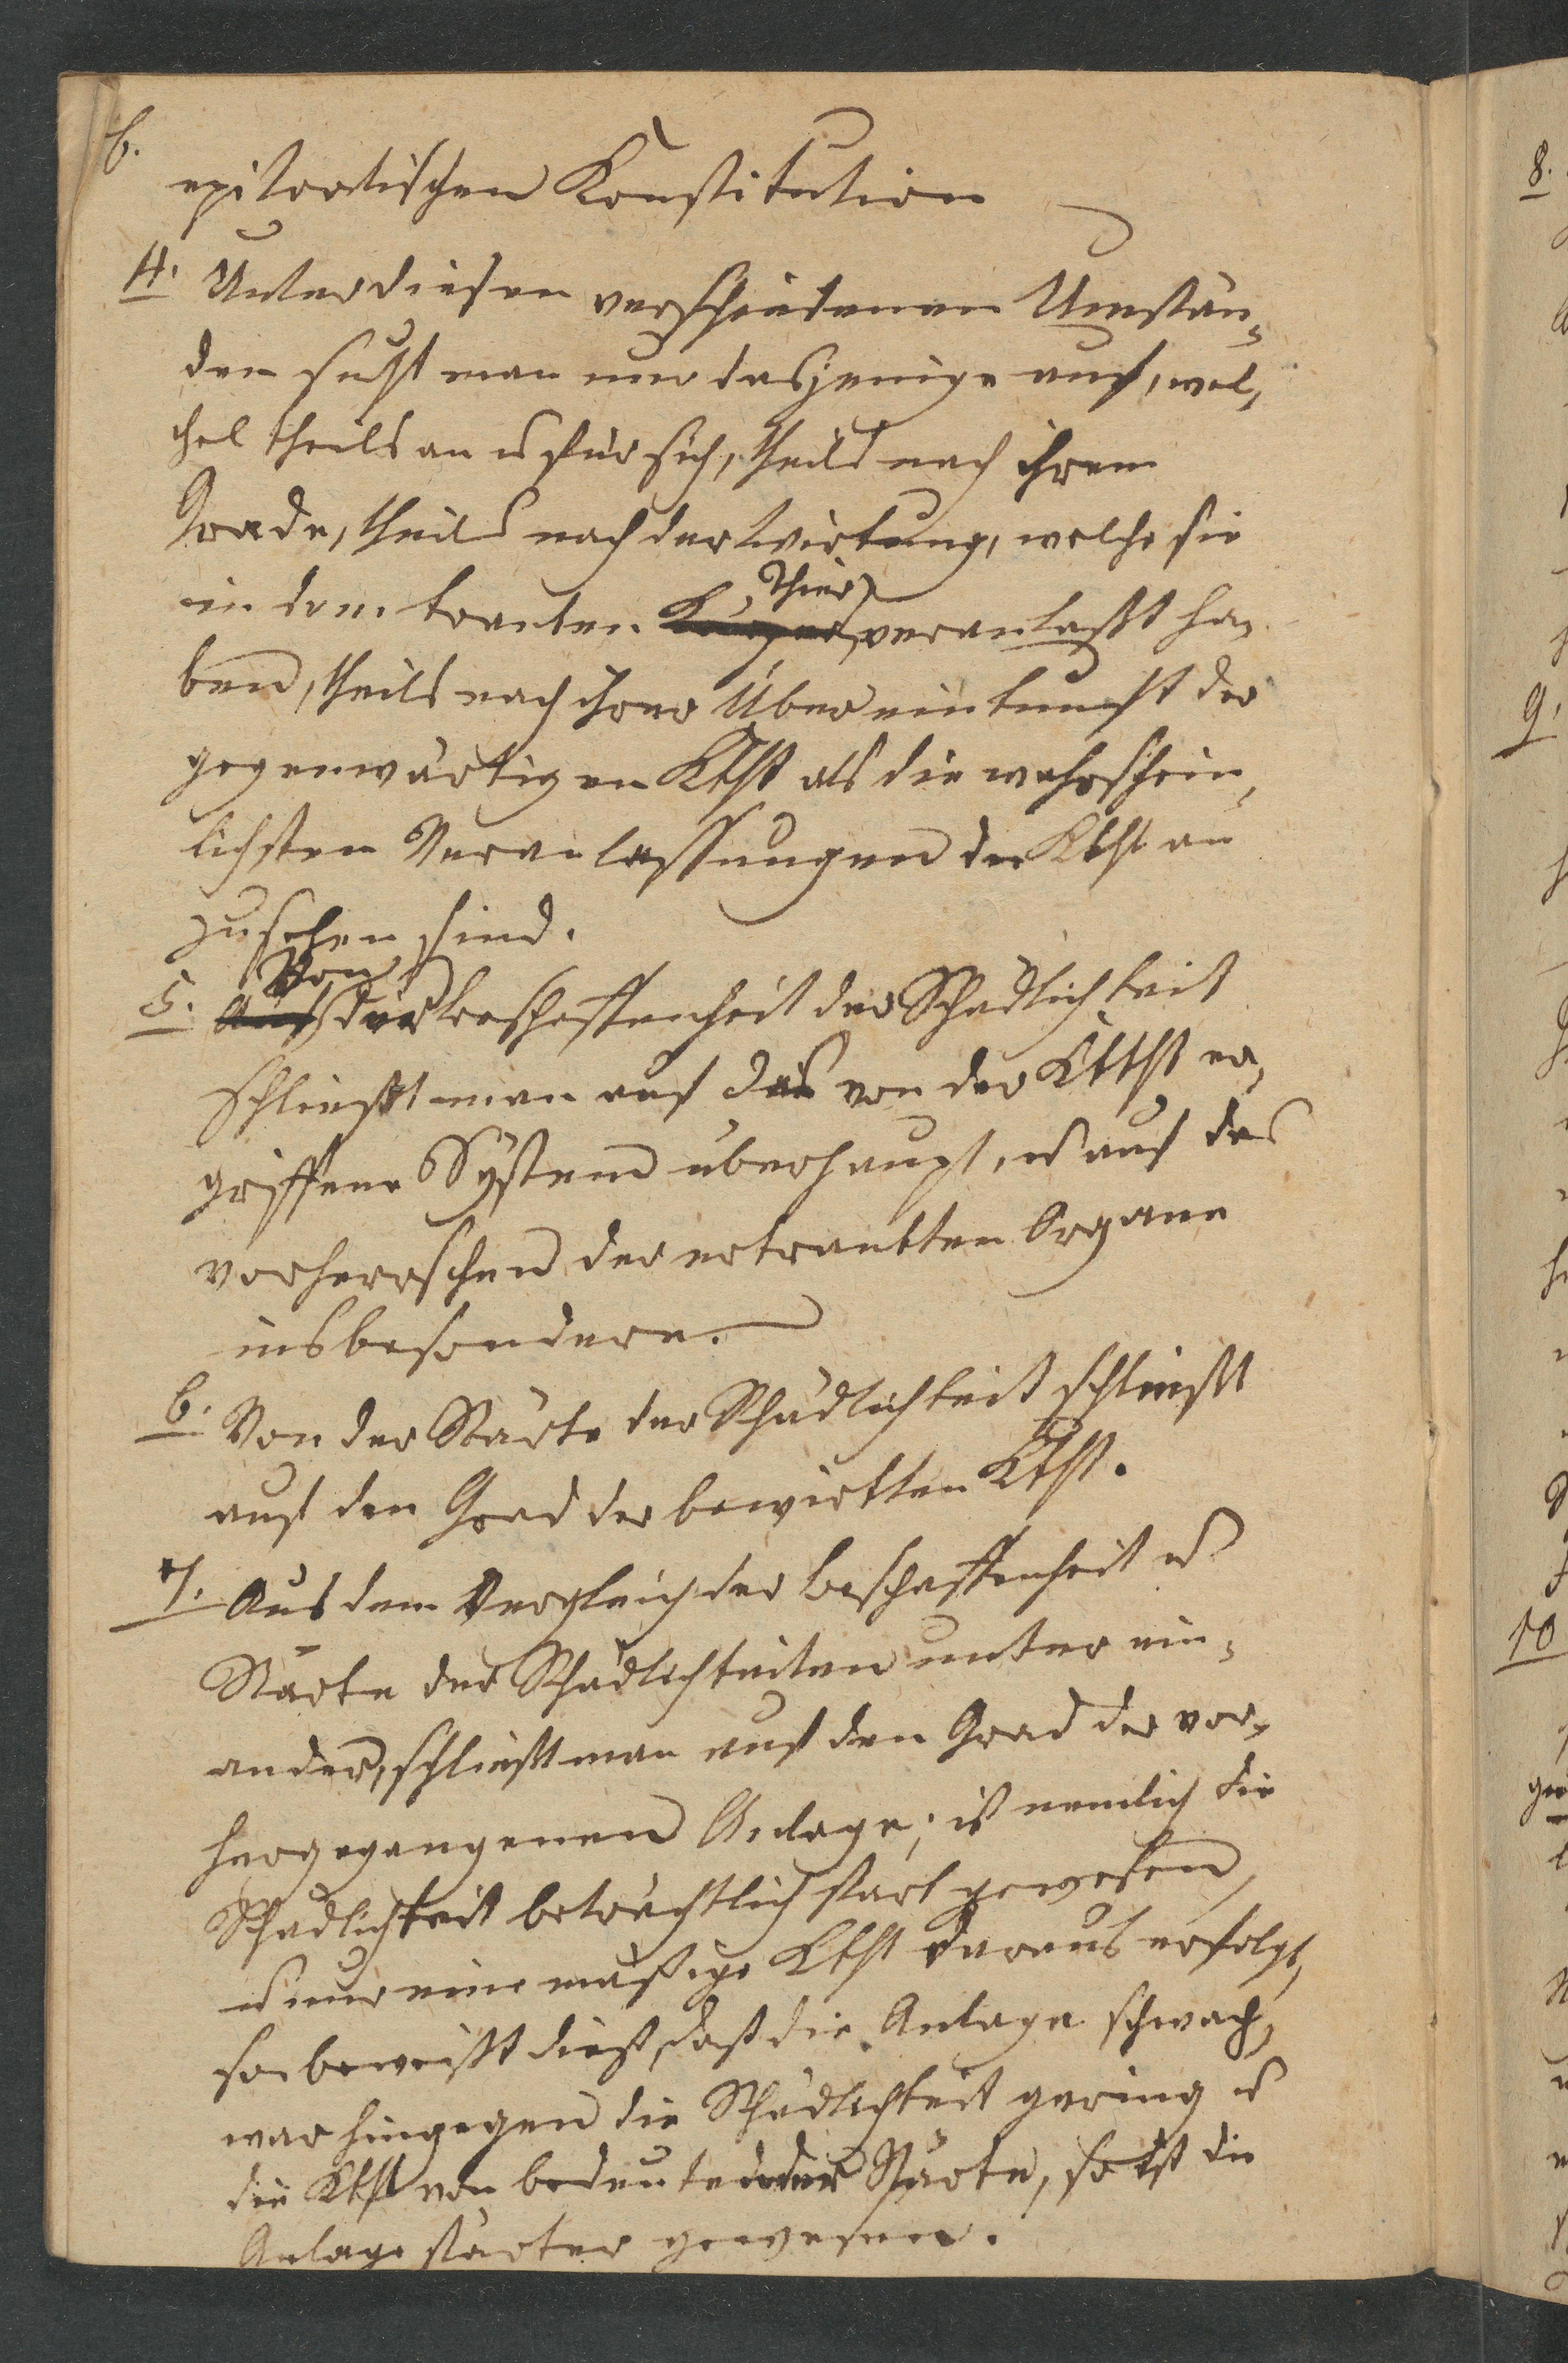 6.
epizootischen Konstitution
4. Unter diesen verschiedenen Umstän¬
den sucht man nur dasjenige auf, wel¬
ches theils an u für sich, theils nach ihrem
Grade, theils nach der Wirkung, welche sie
in dem kranken Körper Thier veranlaßt ha¬
ben, theils nach ihrer Übereinkunft der
gegenwärtigen Kkht als die wahrschein¬
lichsten Veranlassungen der Kkht an
zusehen sind.
5. Aus Von der Beschaffenheit der Schädlichkeit
schließt man auf das von der Kkht er¬
griffene System überhaupt, u auf das
vorherrschend der erkrankten Organe
insbesondere.
6. Von der Stärke der Schädlichkeit schließt
auf den Grad der bewirkten Kkht.
7. Aus dem Vergleich der Beschaffenheit u
Stärke der Schädlichkeiten unter ein¬
ander, schließt man auf den Grad der vor¬
hergegangenen Anlage; ist nemlich die
Schädlichkeit beträchtlich stark gewesen,
u nur eine mäßige Kkht daraus erfolgt,
so beweißt dieß, daß die Anlage schwach,
war hingegen die Schädlichkeit gering u
die Kkht von bedeutender Stärke, so ist die
Anlage stärker gewesen.
8.
9.
10